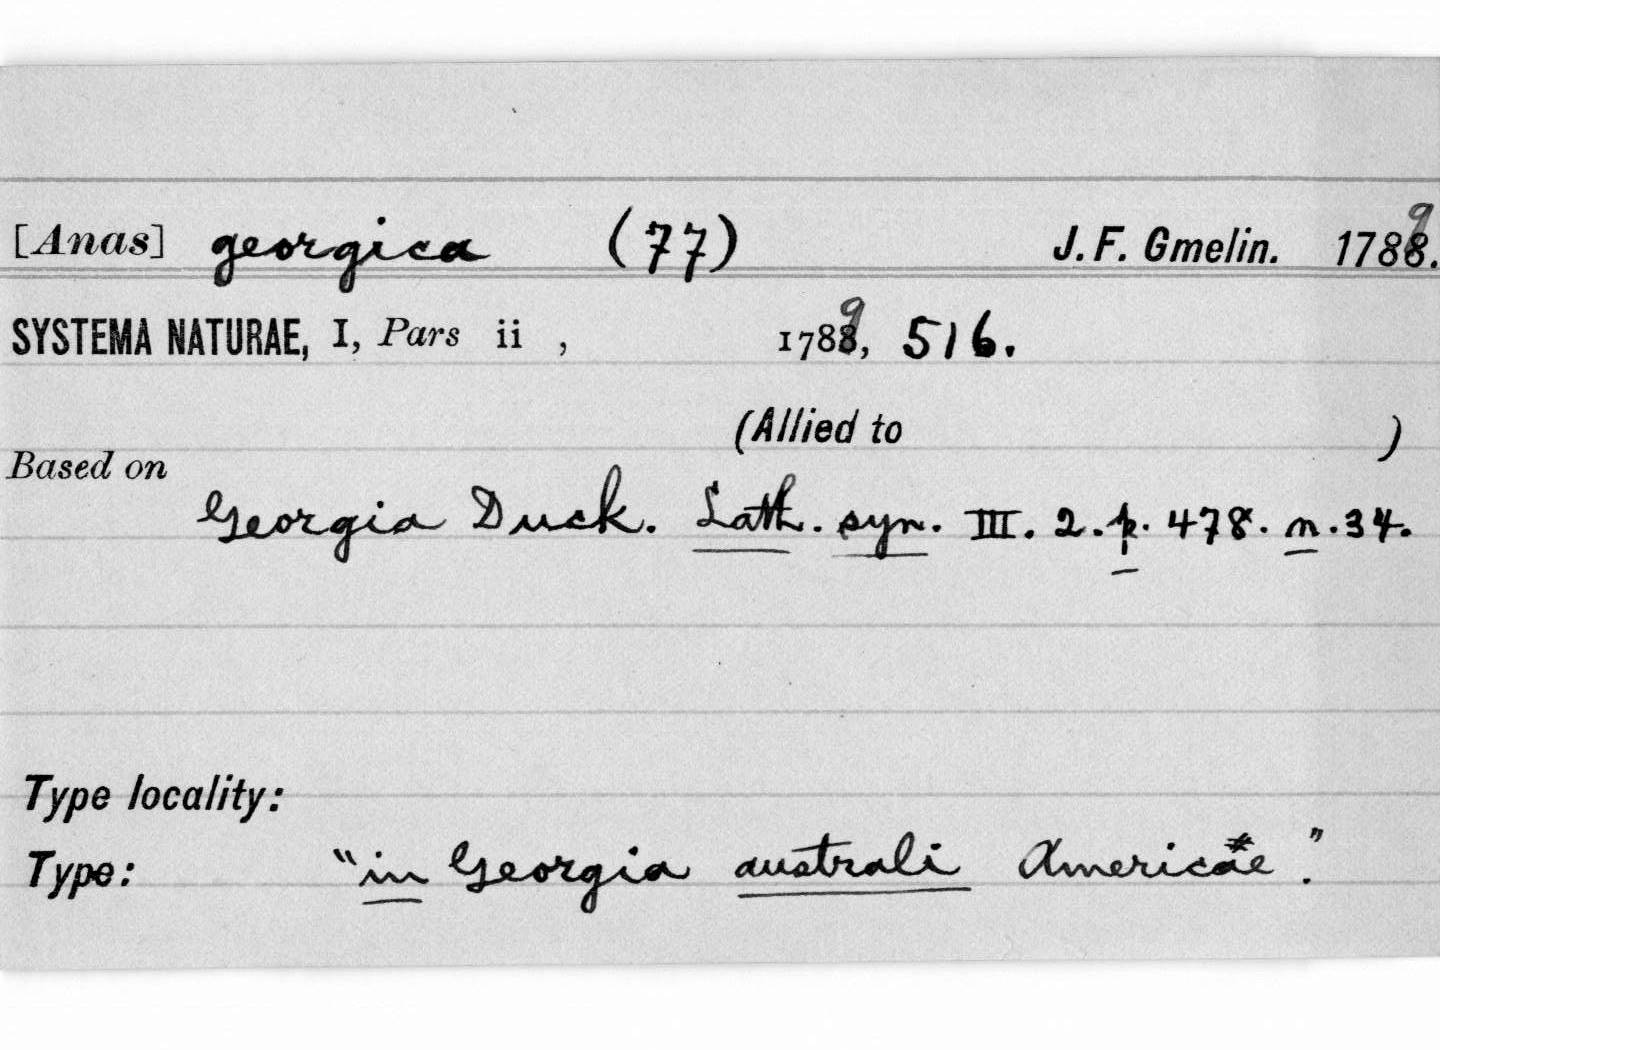 [Anas] georgica (77) J. F. Gmelin. 1789.
SYSTEMA NATURAE, I, Pars ii , 1789, 516.
(Allied to )
Based on
Georgia Duck. Lath. syn. III. 2. p. 478. n. 34.
Type locality:
Type: "in Georgia australi Americae."